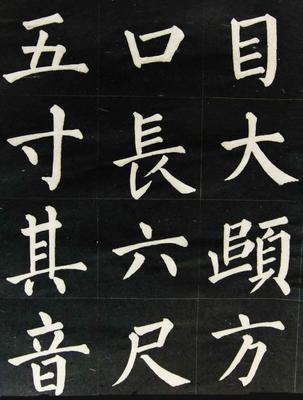 目大頤方
口長六尺
五寸其音